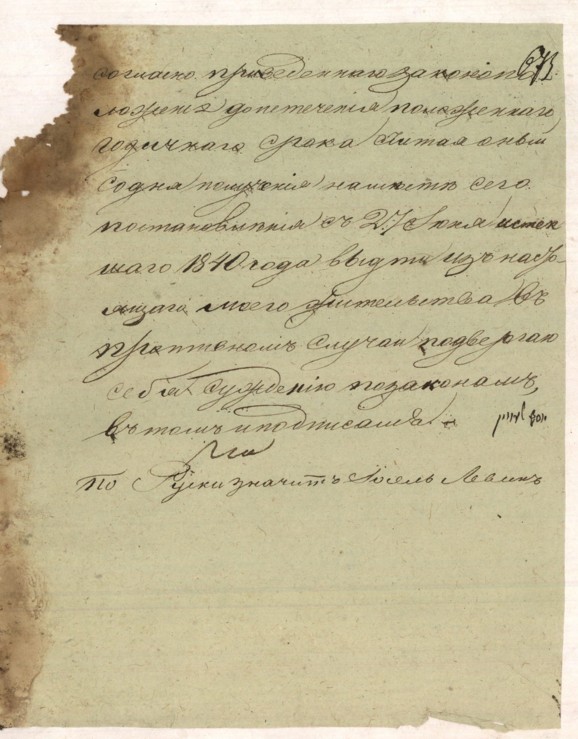 673
согласно приведеннаго законопо
ложенія до истеченія положеннаго
годичнаго срока считая оный
со дня полученія на мѣстѣ сего
постановленія съ 27 Іюня истек
шаго 1840 года выдти изъ насто
ящаго моего жительства, въ
противномъ случаи подвергаю
себя сужденію по законамъ,
въ томъ и подписался
יוסף לעווין
по Руски значитъ Іосель Левинъ